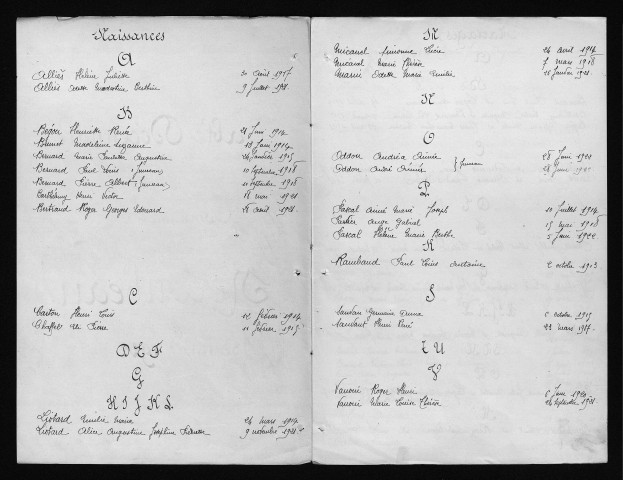 Naissances
A
Alliès Hélène Juliette 30 août 1917
Alliès Madeleine 9 juillet 1921
B
Bégou Henriette Renée 21 Juin 1914
Brunet Madeleine Suzanne 13 Juin 1914
Bernard Marie Augustine 24 Janvier 1915
Bernard Paul Louis (Jumeau) 10 septembre 1918
Bernard Pierre Albert (Jumeau) 10 septembre 1918
Barthélemy Henri Victor 18 mai 1921
Bertrand Roger Georges Edouard 18 août 1921
C
Carton Henri Louis 12 février 1914
Pierre 11 février 1915
D E F
G
H I J K L
Liotard Emilie Maria 24 mars 1914
Liotard Alice Augustine Joséphine 9 novembre 1921
M
Micanal Simonne 24 avril 1914
Micanal Marie 7 mars 1918
Massié Odette Marie Emilie 28 Janvier 1921
N
O
Oddon Andréa Aimée 28 Juin 1921
Oddon André Aimé } Jumeau 28 Juin
P
Pascal Aimé Marie Joseph 10 Juillet 1914
Ange Gabriel 15 mai 1918
Pascal Hélène Marie Berthe 5 Juin 1922
R
Rambaud Paul Louis Antoine 2 octobre 1913
S
Germaine Emma 6 octobre 1915
Henri René 22 mars 1917
T U
V
Roger Henri 6 Juin 1920
Marie Louise 24 septembre 1921